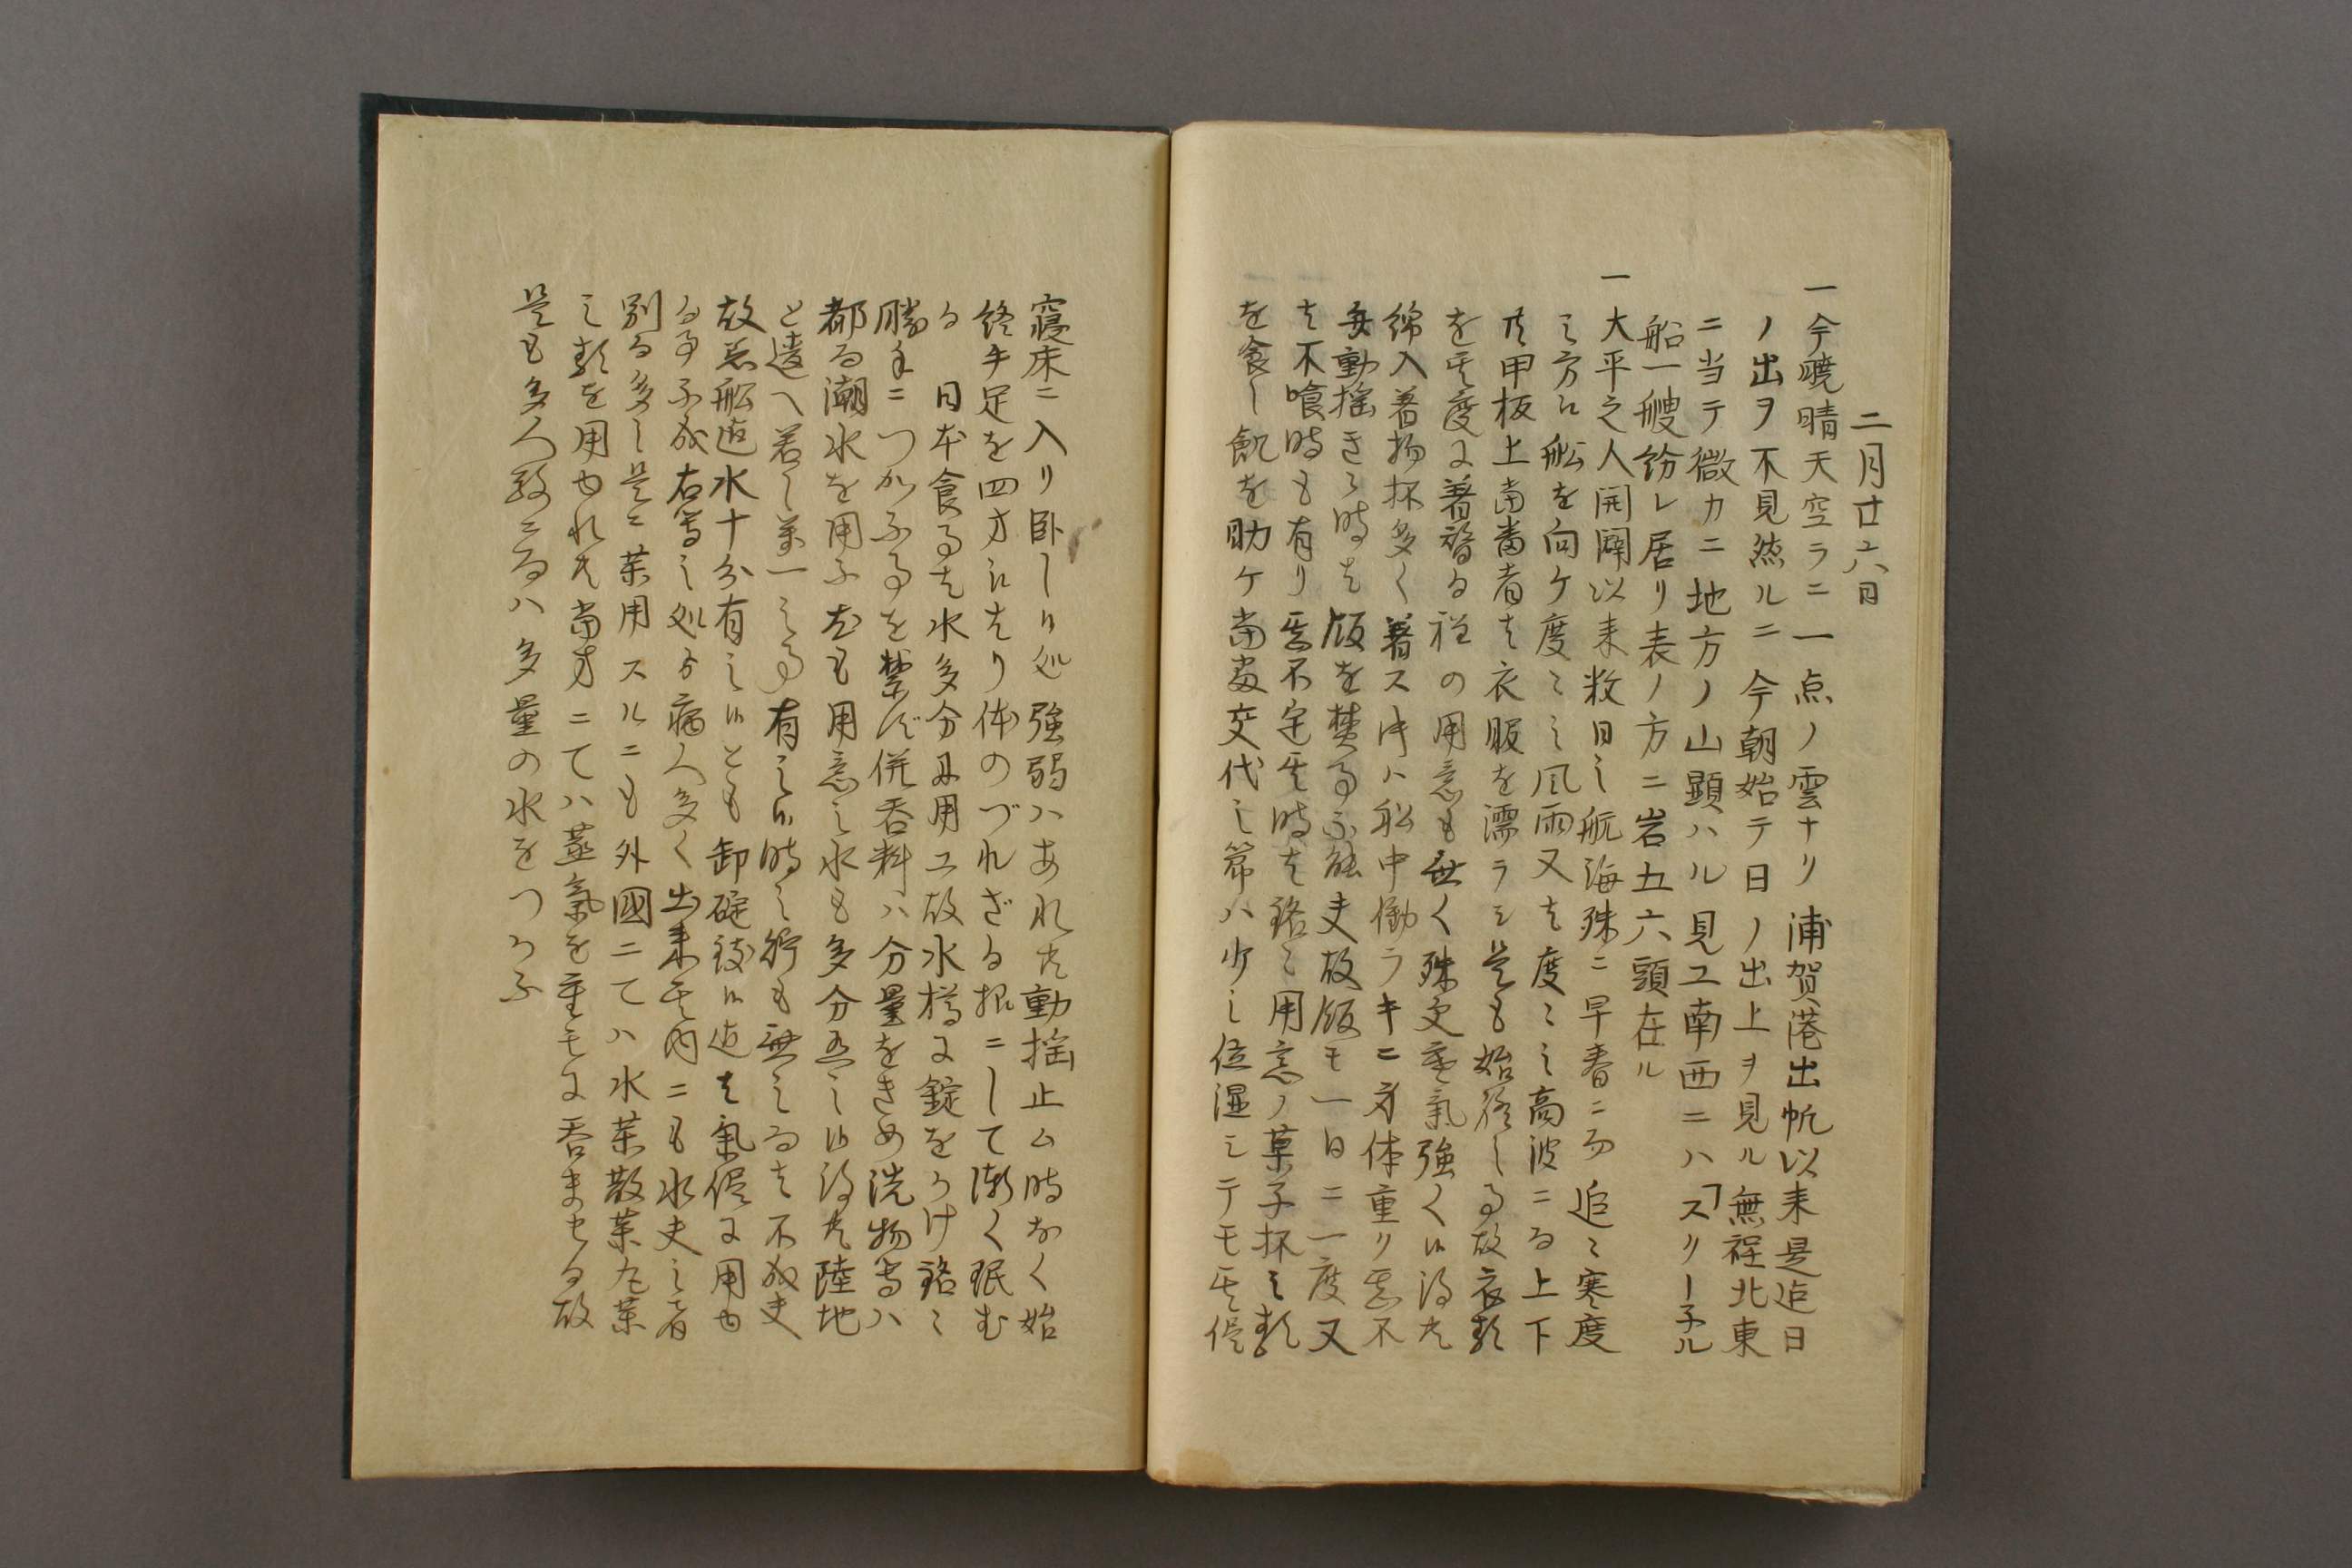 二月廿六日
一今暁晴天空ラニ一点ノ雲ナリ浦賀港出帆以来是迄日
ノ出ヲ不見然ルニ今朝始テ日ノ出上ヲ見ル無程北東
ニ当テ微カニ地方ノ山顕ハル見ユ南西ニハ「スクー子ル
船一艘紛レ居リ表ノ方ニ岩五六頭在ル
一大平之人開闢以来数日之航海殊ニ早春ニ而追々寒度
之方江船を向ケ度々之風雨又は度々之高波ニ而上下
共甲板上当番者は衣服を濡ラシ是も始終之事故衣類
を其度に着替る程の用意も無く殊更寒氣強く候得共
綿入着物抔多く着ス時ハ船中働ラキニ身体重り悪不
動揺きる時は飯を焚事不能夫故飯モ一日ニ一度又
は不喰時も有り其時は銘々用意ノ菓子抔之類
を食し飢を助ケ当番交代之節ハ少し位湿ミテモ其侭
寝床ニ入リ臥し候処強弱ハあれ共動揺止ム時なく始
終手足を四方江はり体のづれざる様ニして漸く眠む
る 日本食事は水多分に用ユ故水樽に錠をかけ銘々
勝手ニつかふ事を禁ず併呑料ハ分量をきめ洗物等ハ
都而潮水を用ふ尤も用意之水も多分有之候得共陸地
と違へ若し万一之事有之候時之術も無之而は不成夫
故悪船迄水十分有之候とも卸碇後候迄は氣侭に用ゆ
る事不成右等之処より病人多く出来其内ニも水夫之者
別而多し是ニ薬用スルニも外國ニてハ水薬散薬丸薬
之類を用ゆれ共当方ニてハ蒸氣を重モに呑ませる故
是も多人数ニ而ハ多量の水をつかふ